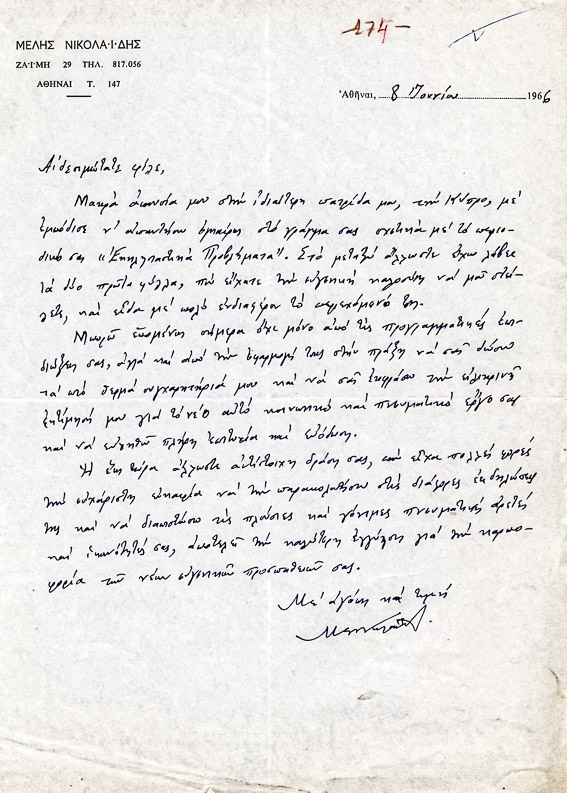 174
ΜΕΛΗΣ ΝΙΚΟΛΑ·Ι·ΔΗΣ
ΖΑ·Ι·ΜΗ 29 ΤΗΛ. 817.056
ΑΘΗΝΑΙ Τ. 147
Ἀθῆναι, 8 Ἰουνίου 1966
Αἰδεσιμώτατε φίλε,
Μακρά ἀπουσία μου στήν ἰδιαίτερη πατρίδα μου, τήν Κύπρο, μέ
ἐμπόδισε ν' ἀπαντήσω ἐγκαίρως στό γράμμα σας σχετικά μέ τό περιο-
δικό σας «Ἐκκλησιαστικά Προβλήματα». Στό μεταξύ ἄλλωστε εἶχα λάβει
τά δύο πρῶτα φύλλα, πού εἴχατε τήν εὐγενική καλωσύνη νά μοῦ στεί-
λετε, καί εἶδα μέ πολύ ἐνδιαφέρον τό περιεχόμενό της.
Μπορῶ ἑπομένως σήμερα ὄχι μόνο ἀπό τίς προγραμματικές ἐπι-
διώξεις σας, ἀλλά καί ἀπό τήν ἐφαρμογή τους στήν πράξη νά σᾶς δώσω
τά πιό θερμά συγχαρητήριά μου καί νά σᾶς ἐκφράσω τήν εἰλικρινῆ
ἐκτίμησή μου γιά τό νέο αὐτό κοινωνικό καί πνευματικό ἔργο σας
καί νά εὐχηθῶ πλήρη ἐπιτυχία καί ἐπίδοση.
Ἡ ἕως τώρα ἄλλωστε ἀντίστοιχη δράση σας, πού εἶχα πολλές φορές
τήν εὐχάριστη εὐκαιρία νά τήν παρακολουθήσω στίς διάφορες ἐκδηλώσεις
της καί νά διαπιστώσω τίς πλούσιες καί γόνιμες πνευματικές ἀρετές
καί ἱκανότητές σας, ἀποτελεῖ τήν καλύτερη ἐγγύηση γιά τήν καρπο-
φορία τῶν νέων εὐγενικῶν προσπαθειῶν σας.
Μέ ἀγάπη καί τιμή